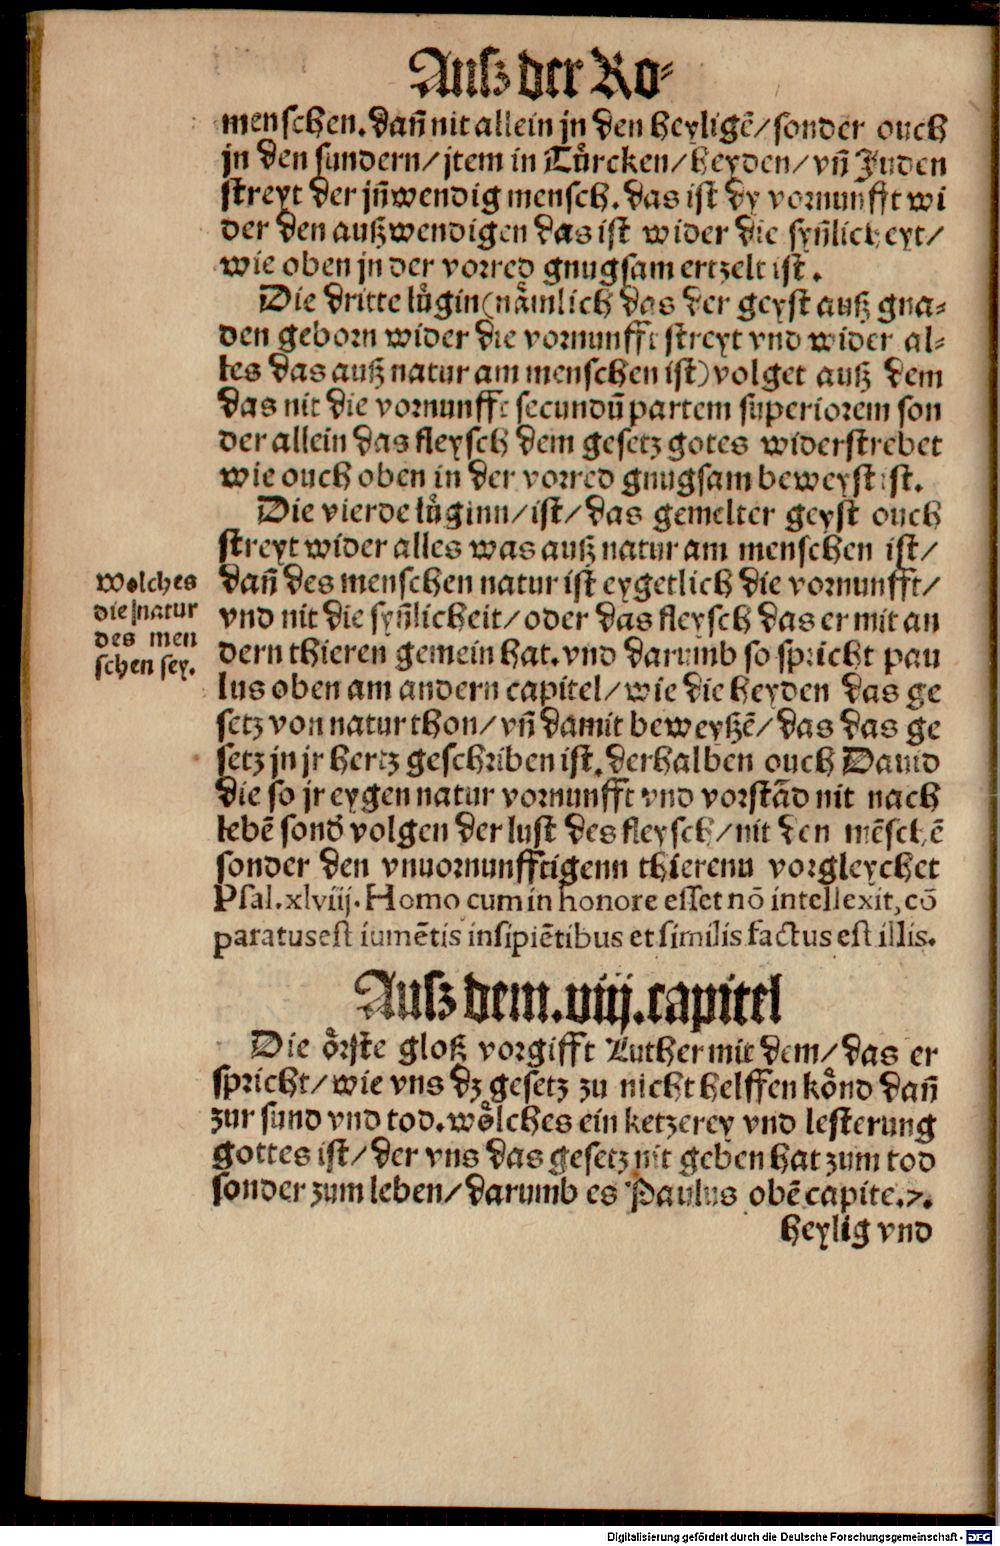 Ausz der Ro⸗
menschen. dañ nit allein jn den heyligē/ sonder ouch
jn den sundern/ jtem in Tůrcken/ heyden/ vñ Juden
streyt der jñwendig mensch. das ist dy vornunfft wi
der den außwendigen das ist wider die syñlicheyt/
wie oben jn der vorred gnugsam ertzelt ist.
Die dritte lůgin (nåmlich das der geyst auß gna⸗
den geborn wider die vornunfft streyt vnd wider al⸗
les das auß natur am menschen ist) volget auß dem
das nit die vornunfft secundū partem superiorem son
der allein das fleysch dem gesetz gotes widerstrebet
wie ouch oben in der vorred gnugsam beweyst ist.
Die vierde lůginn/ ist/ das gemelter geyst ouch
streyt wider alles was auß natur am menschen ist/
Wolches
die natur
des men
schen sey.
dañ des menschen natur ist eygetlich die vornunfft/
vnd nit die syñlicheit/ oder das fleysch das er mit an
dern thieren gemein hat. vnd darumb so spricht pau
lus oben am andern capitel/ wie die heyden das ge
setz von natur thon/ vñ damit beweyßē/ das das ge
setz jn jr hertz geschriben ist. derhalben ouch Dauid
die so jr eygen natur vornunfft vnd vorstād nit nach
lebē sonď volgen der lust des fleysch/ nit den mēschē
sonder den vnuornunfftigenn thierenn vorgleychet
Psal. xlviij. Homo cum in honore esset nō intellexit, cō
paratus est iumētis insipiētibus et similis factus est illis.
Ausz dem. viij. capitel
Die ǒrste gloß vorgifft Luther mit dem/ das er
spricht/ wie vns dz gesetz zu nicht helffen kǒnd dañ
zur sund vnd tod. wǒlches ein ketzerey vnd lesterung
gottes ist/ der vns das gesetz nit geben hat zum tod
sonder zum leben/ darumb es Paulus obē capite. 7.
heylig vnd
Digitalisierung gefördert durch die Deutsche Forschungsgemeinschaft - DFG